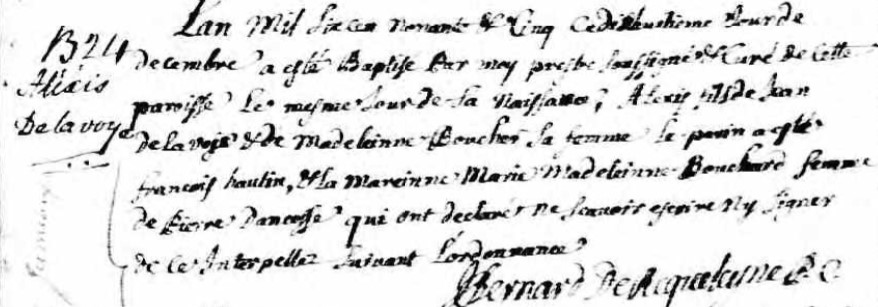 Lan Mil Sixcen nonante & Cinq Cedixhuictieme Jour de
B24 decembre a esté Baptisé Par moy prestre soussigné & Curé de Cette
Alexis paroisse Le mesme Jour de sa Naissance, Alexis fils de Jean
De la voye de la voye & de Madeleinne Boucher sa femme le parin a esté
françois hautin, & la Mareinne Marie Madeleinne Bouchard femme
de Pierre Dancosse qui ont declaré ne scavoir escrire Ny signer
de Ce Interpellez suivant Lordonnance
Bernard De Roqueleyne